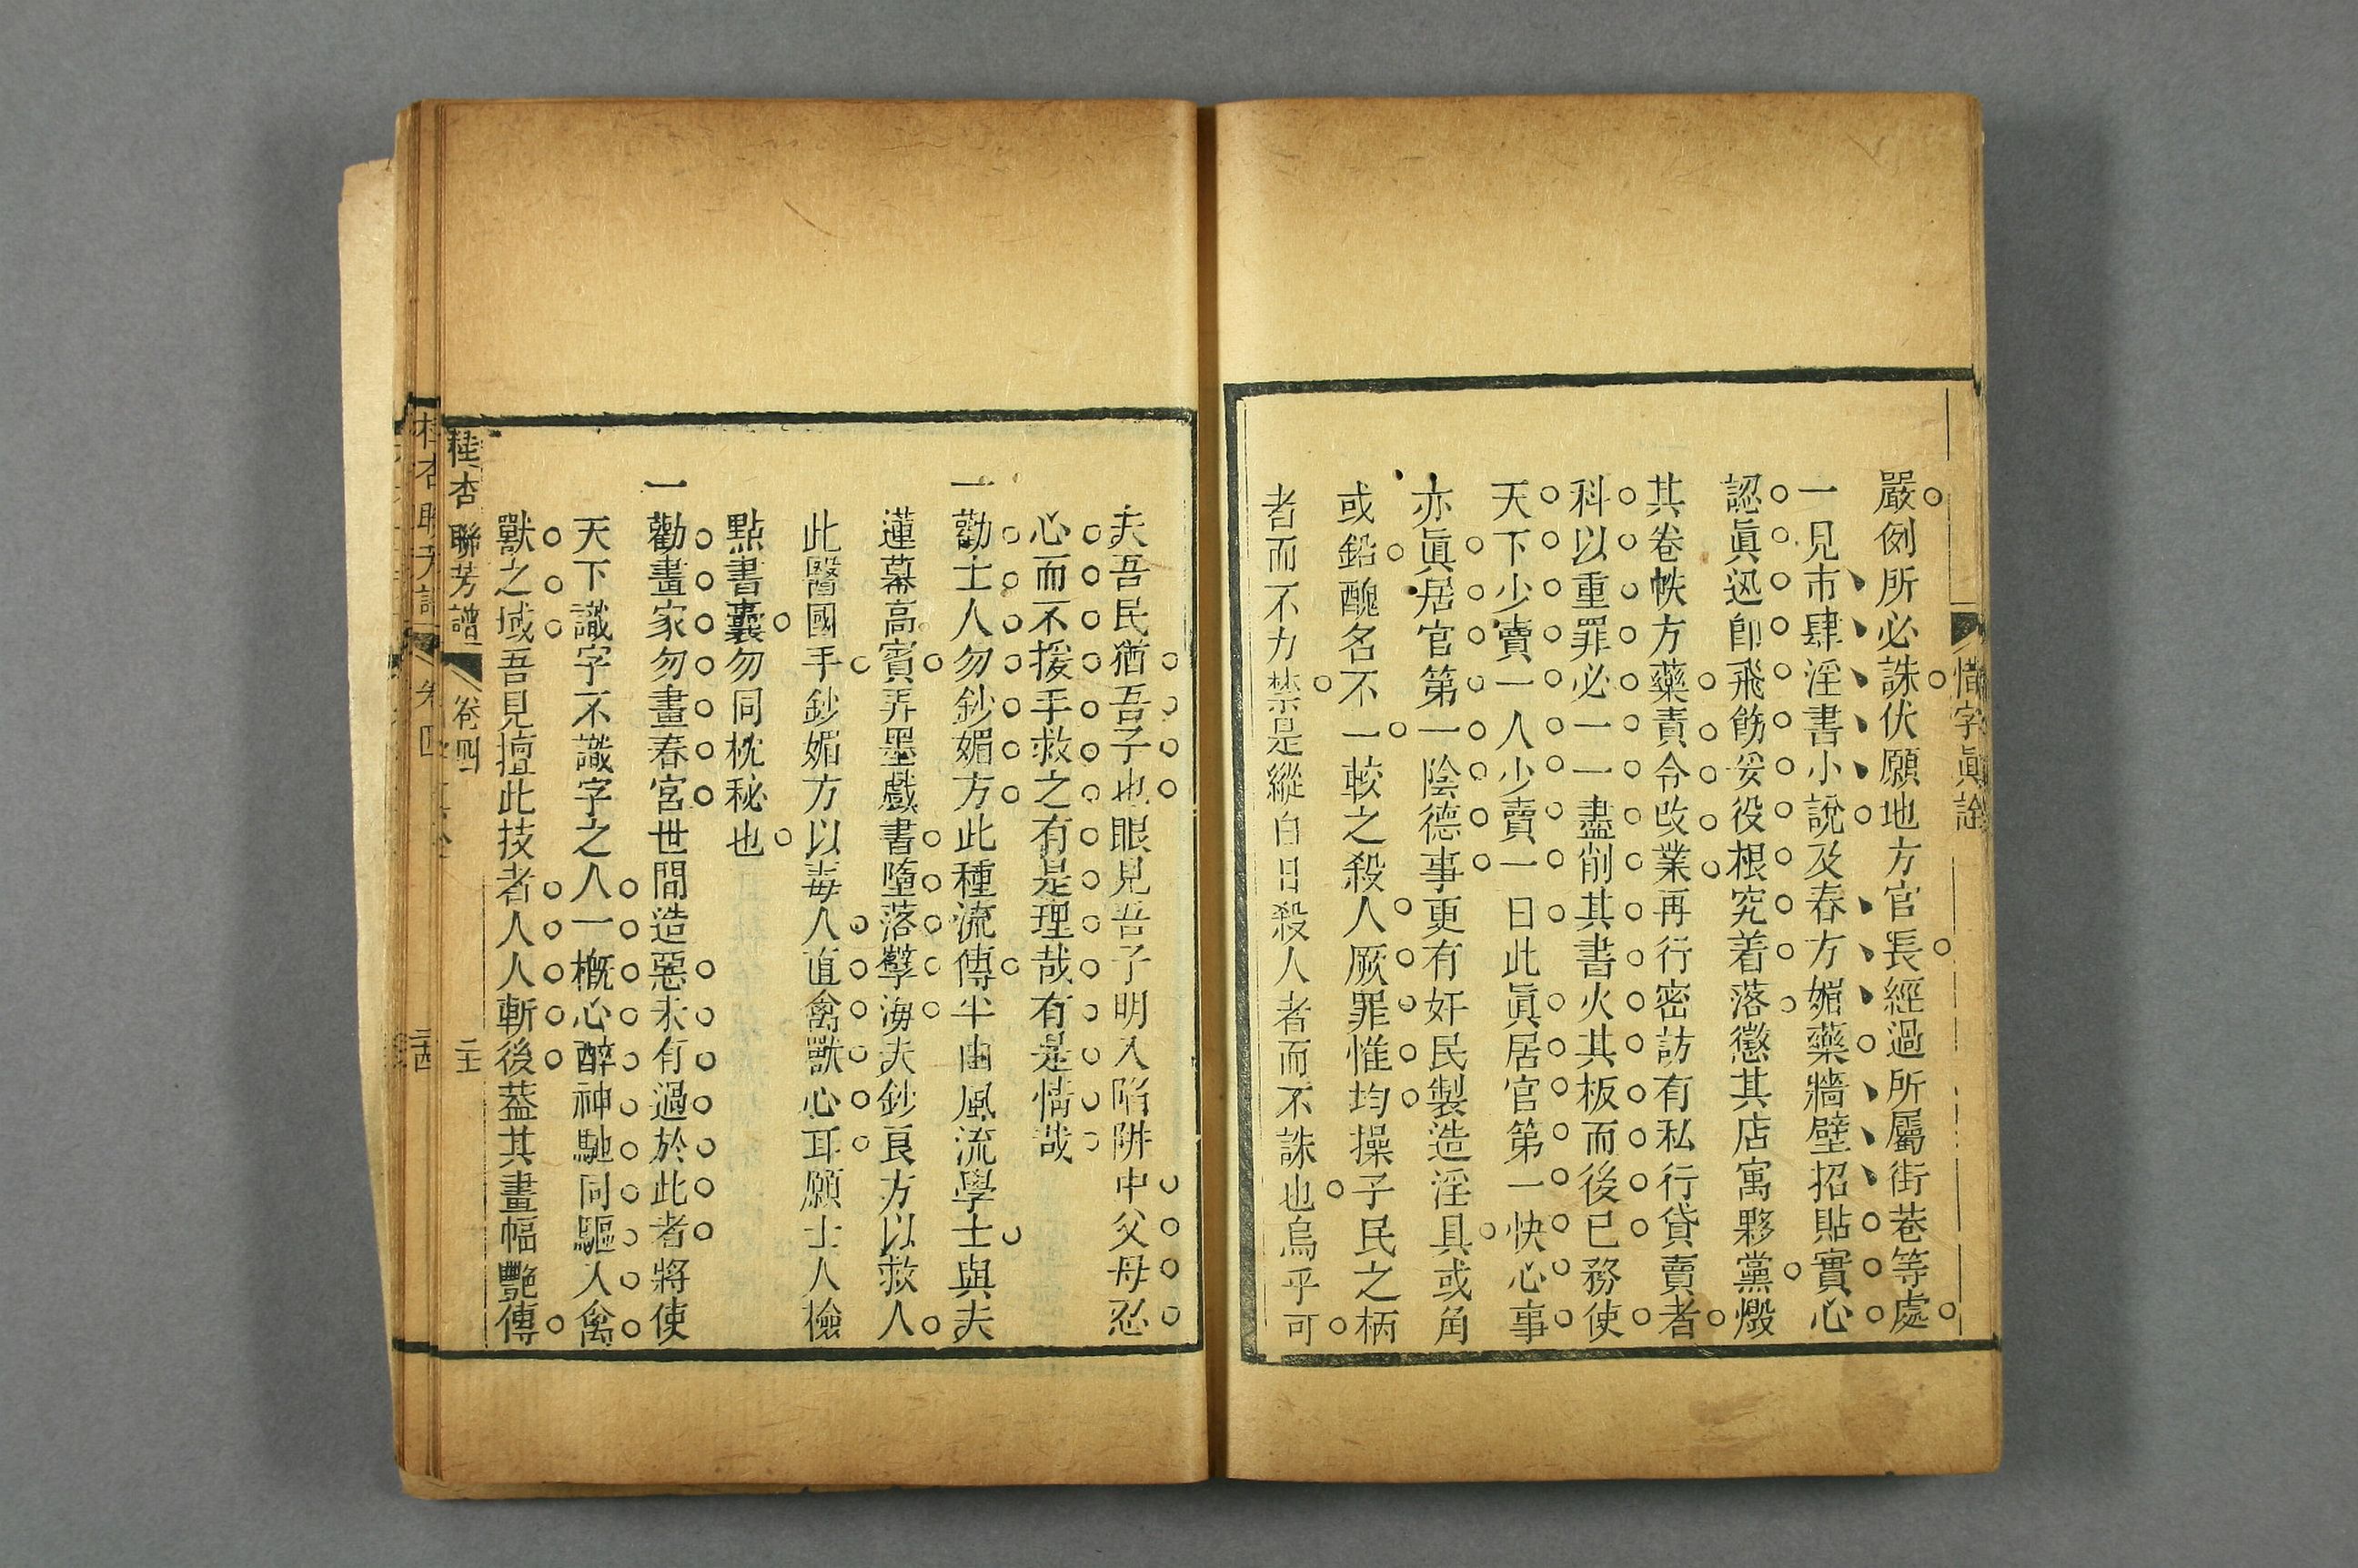 惜字眞詮
嚴例所必誅伏願地方官長經過所屬街巷等處
一見市肆淫書小說及春方媚藥牆壁招貼實心
認眞迅卽飛飭妥役根究着落懲其店寓夥黨燬
其卷帙方藥責令改業再行密訪有私行貸賣者
科以重罪必一一盡削其書火其板而後已務使
天下少賣一人少賣一日此眞居官第一快心事
亦眞居官第一陰德事更有奸民製造淫具或角
或鉛醜名不一較之殺人厥罪惟均操子民之柄
者而不力禁是縱白日殺人者而不誅也烏乎可
夫吾民猶吾子也眼見吾子明入陷阱中父母忍
心而不援手救之有是理哉有是情哉
一勸士人勿鈔媚方此種流傳半由風流學士與夫
蓮幕高賓弄墨戲書墮落孽海夫鈔良方以救人
此醫國手鈔媚方以毒人直禽獸心耳願士人檢
點書囊勿同枕秘也
一勸畫家勿畫春宮世間造惡未有過於此者將使
天下識字不識字之人一概心醉神馳同驅入禽
獸之域吾見擅此技者人人斬後蓋其畫幅艷傳
桂杏聯芳譜 卷四